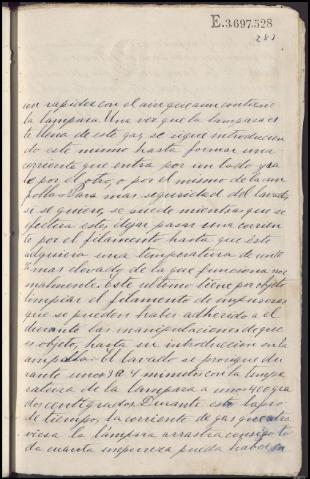 E.3.697.528
281
con rapidez con el aire que aun contiene
la lámpara. Una vez que la lámpara es-
té llena de este gas, se sigue introducien
do este mismo hasta formar una
corriente que entra por un lado y sa
le por el otro, o por el mismo de la am
polla. Para mas seguridad del lavado,
si se quiere, se puede mientras que se
efectua este, dejar pasar una corrien
te por el filamento hasta que éste
adquiera una temperatura de un
% mas elevado de la que funciona nor
malmente. Este ultimo tiene por objeto
limpiar el filamento de impurezas
que se pueden haber adherido a el
durante las manipulaciones de que
es objeto, hasta su introduccion en la
ampolla. El lavado se prosigue du
rante unos 3 a 4 minutos con la tempe
ratura de la lámpara a unos 400 gra
dos centigrados. Durante este lapso
de tiempo, la corriente de gas que atra
viesa la lámpara arrastra consigo to
da cuanta impureza pueda haber en